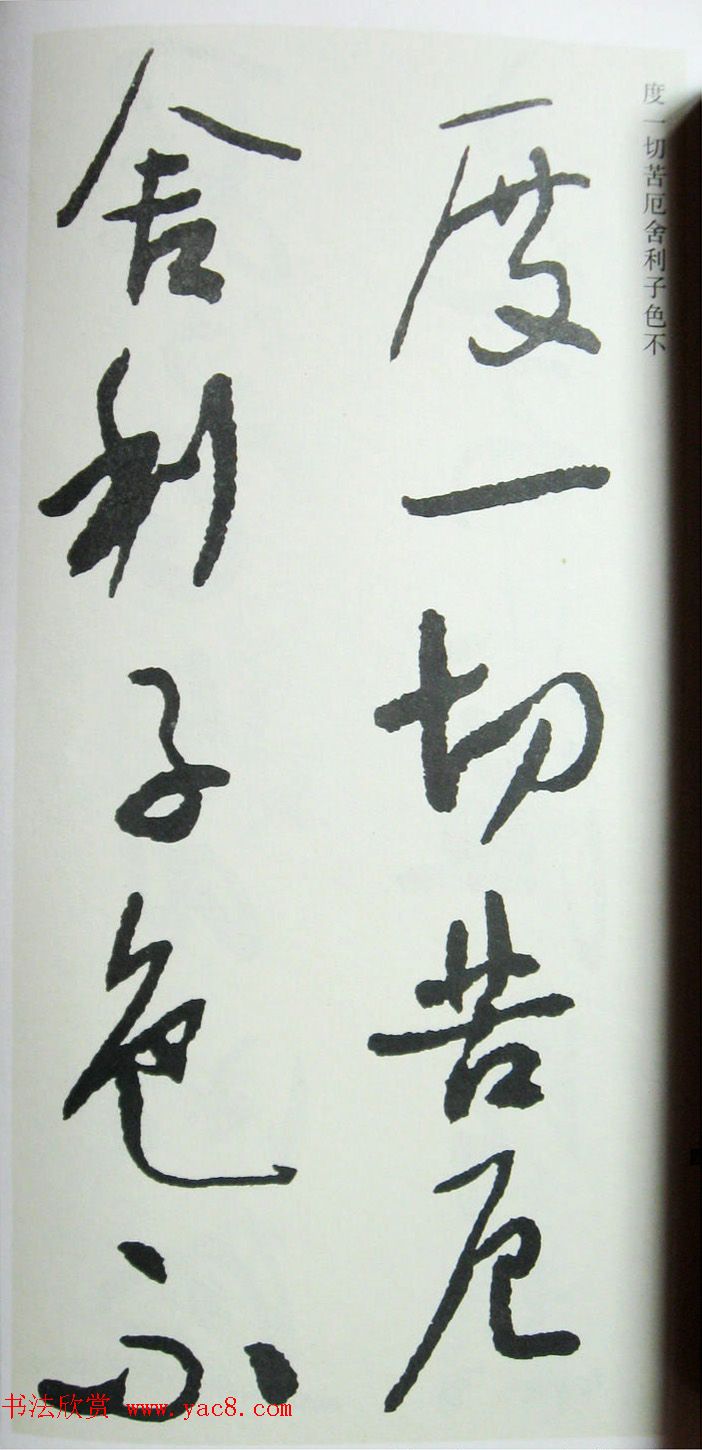 度一切苦厄舍利子色不
度一切苦厄
舍利子色不
书法欣赏 www.yac8.com